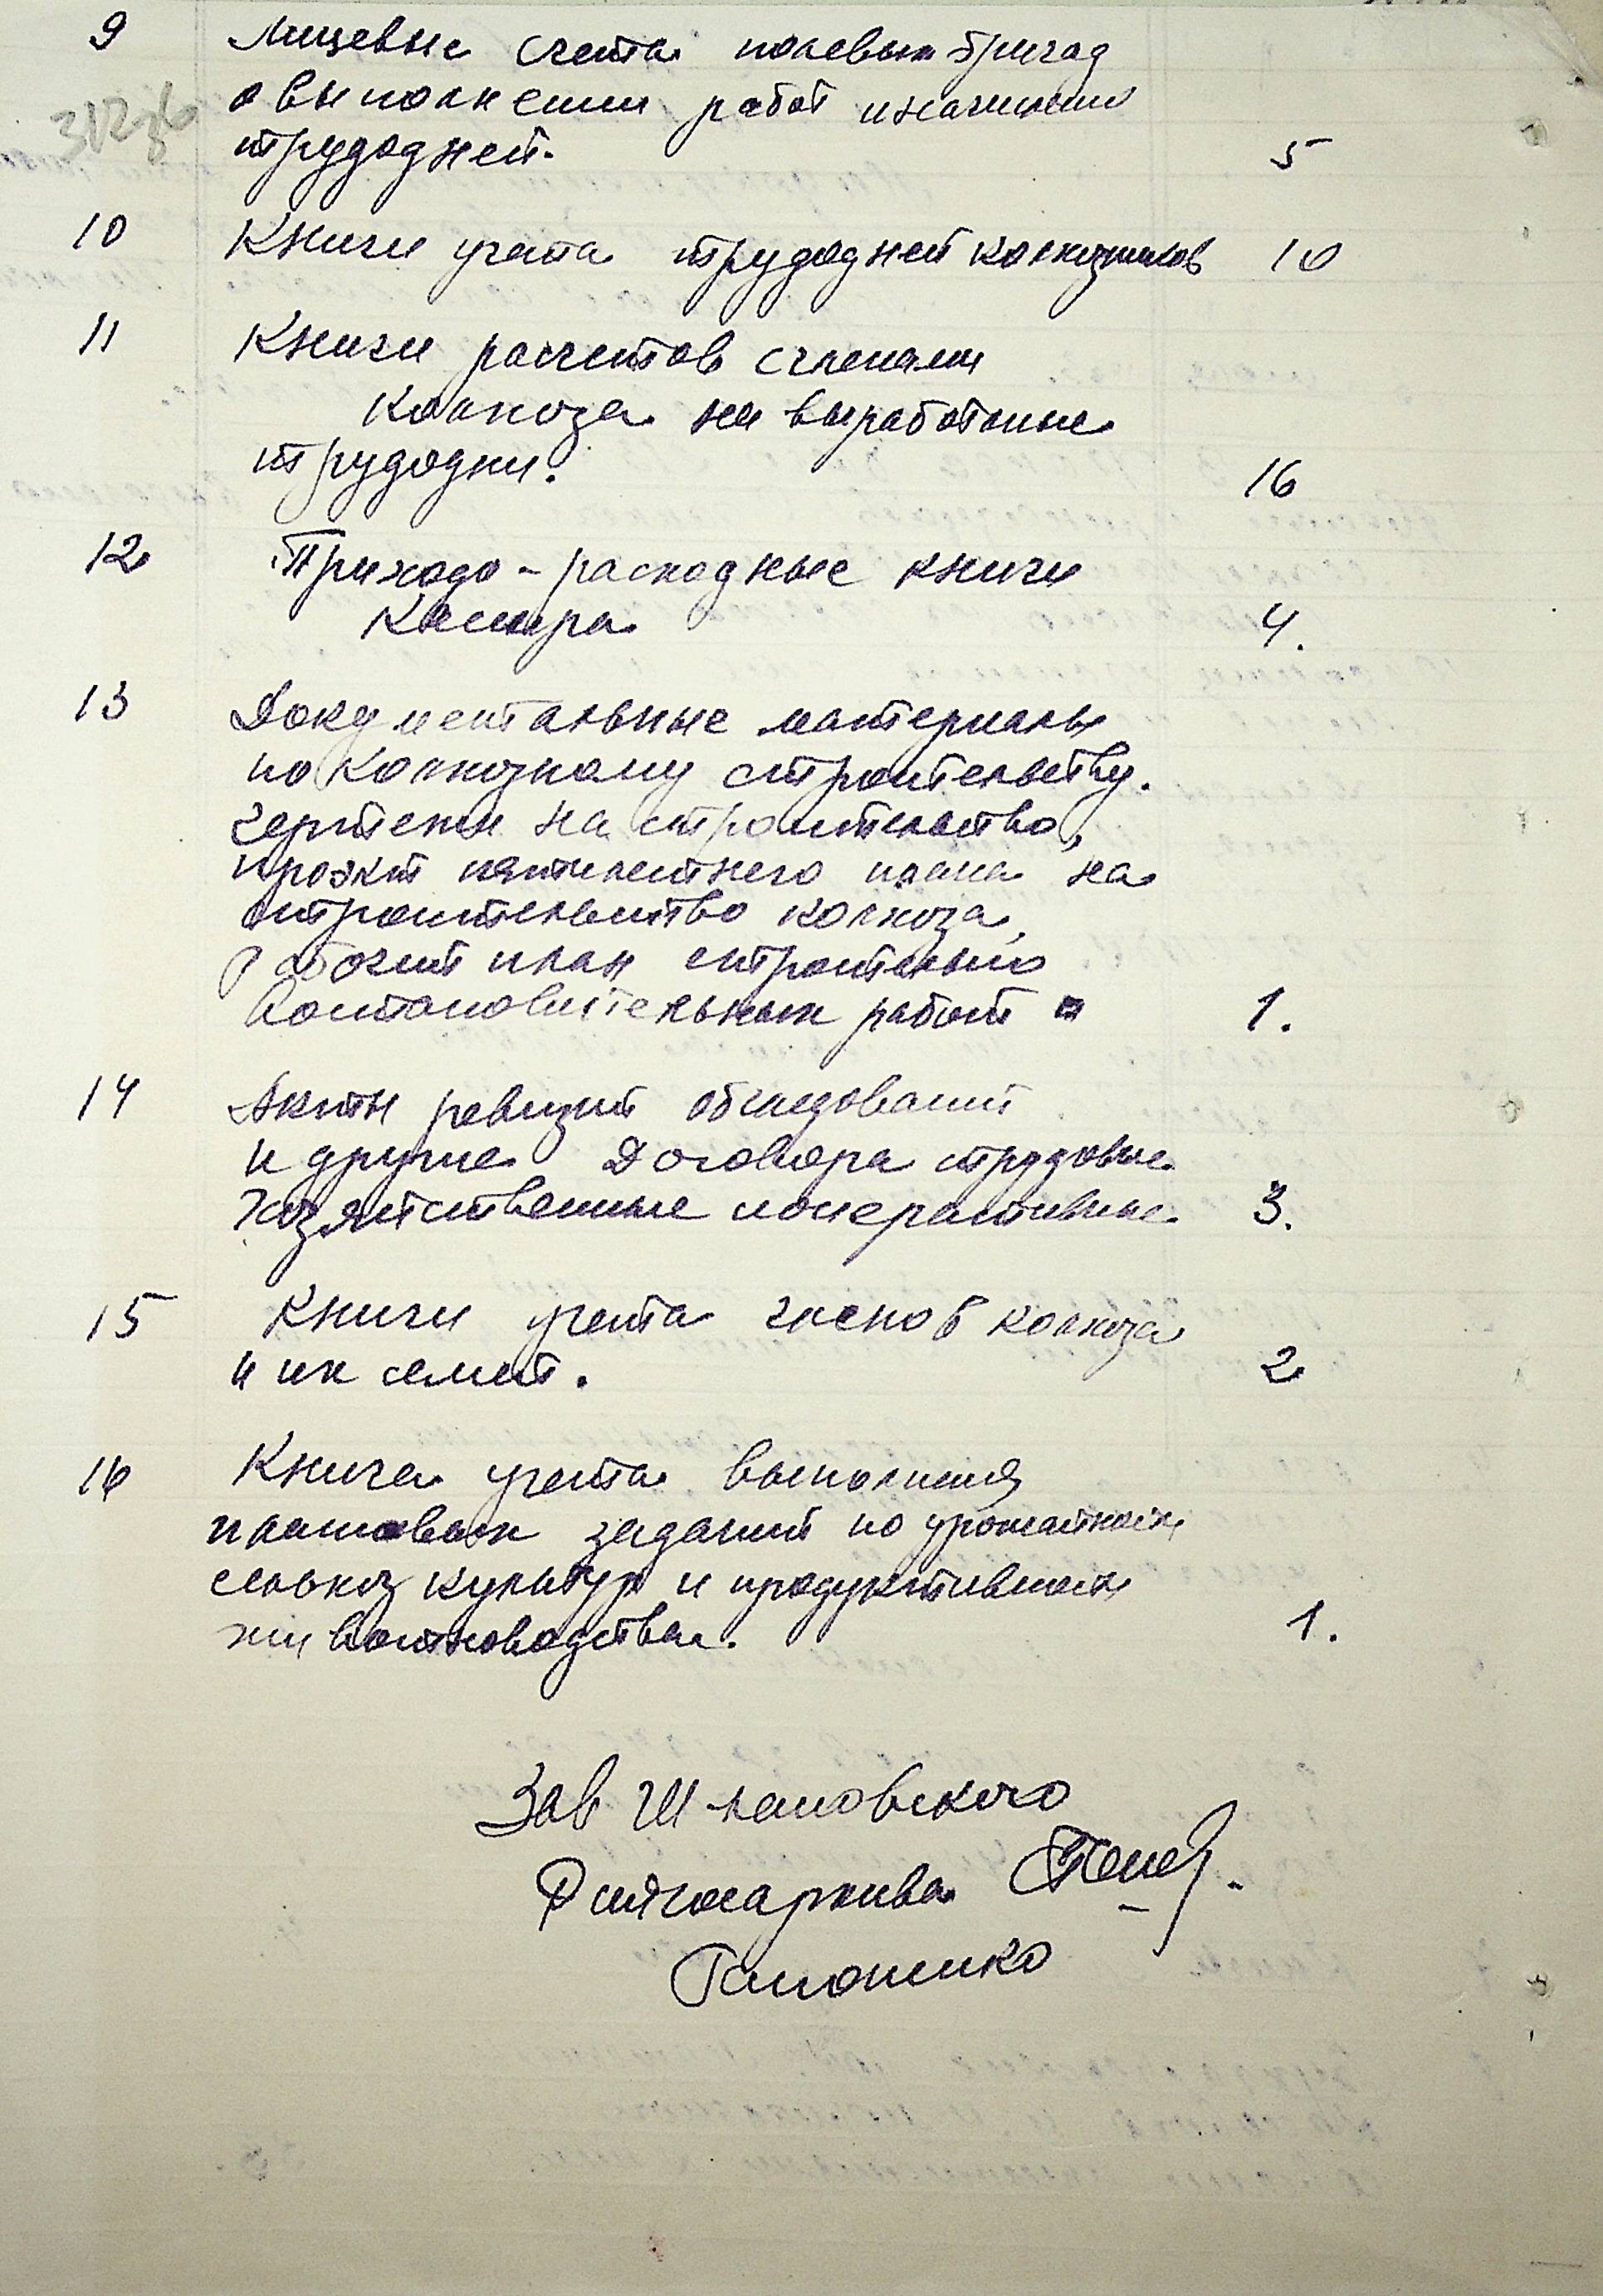 9 Лицевые счета полевых бригад
о выполнении работ и начислении
трудодней. 5
10 Книги учета трудодней колхозников 10
11 Книги расчетов с членами
колхоза на выработаные
трудодни. 16
12 Приходо-расходные книги
Кассира 4.
13 Документальные материалы
по колхозному строительству.
чертежи на строительство,
проэкт пятилетнего плана на
строительство колхоза,
рабочий план строительно
востановительных работ 1.
14 Акты ревизий обследований
и другие Договора трудовые
хозяйственные и оперативные 3.
15 Книги учета членов колхоза
и их семей. 2
16 Книга учета выполнения
плановых заданий по урожайности
сельхоз культур и продуктивности
животноводства. 1.
Зав Шполовского
Райгосархива